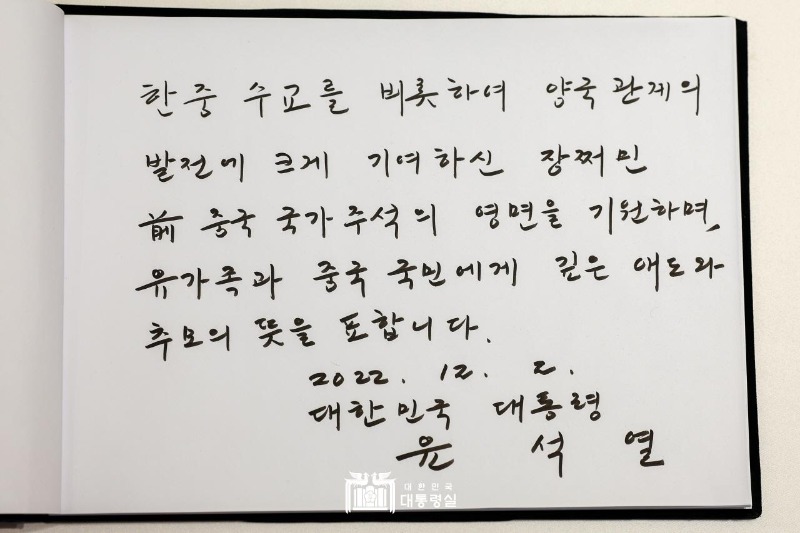 한중 수교를 비롯하여 양국관계의
발전에 크게 기여하신 장쩌민
前 중국 국가주석의 영면을 기원하며,
유가족과 중국 국민에게 깊은 애도와
추모의 뜻을 표합니다.
2022. 12. 2.
대한민국 대통령
윤 석 열
대한민국
대통령실